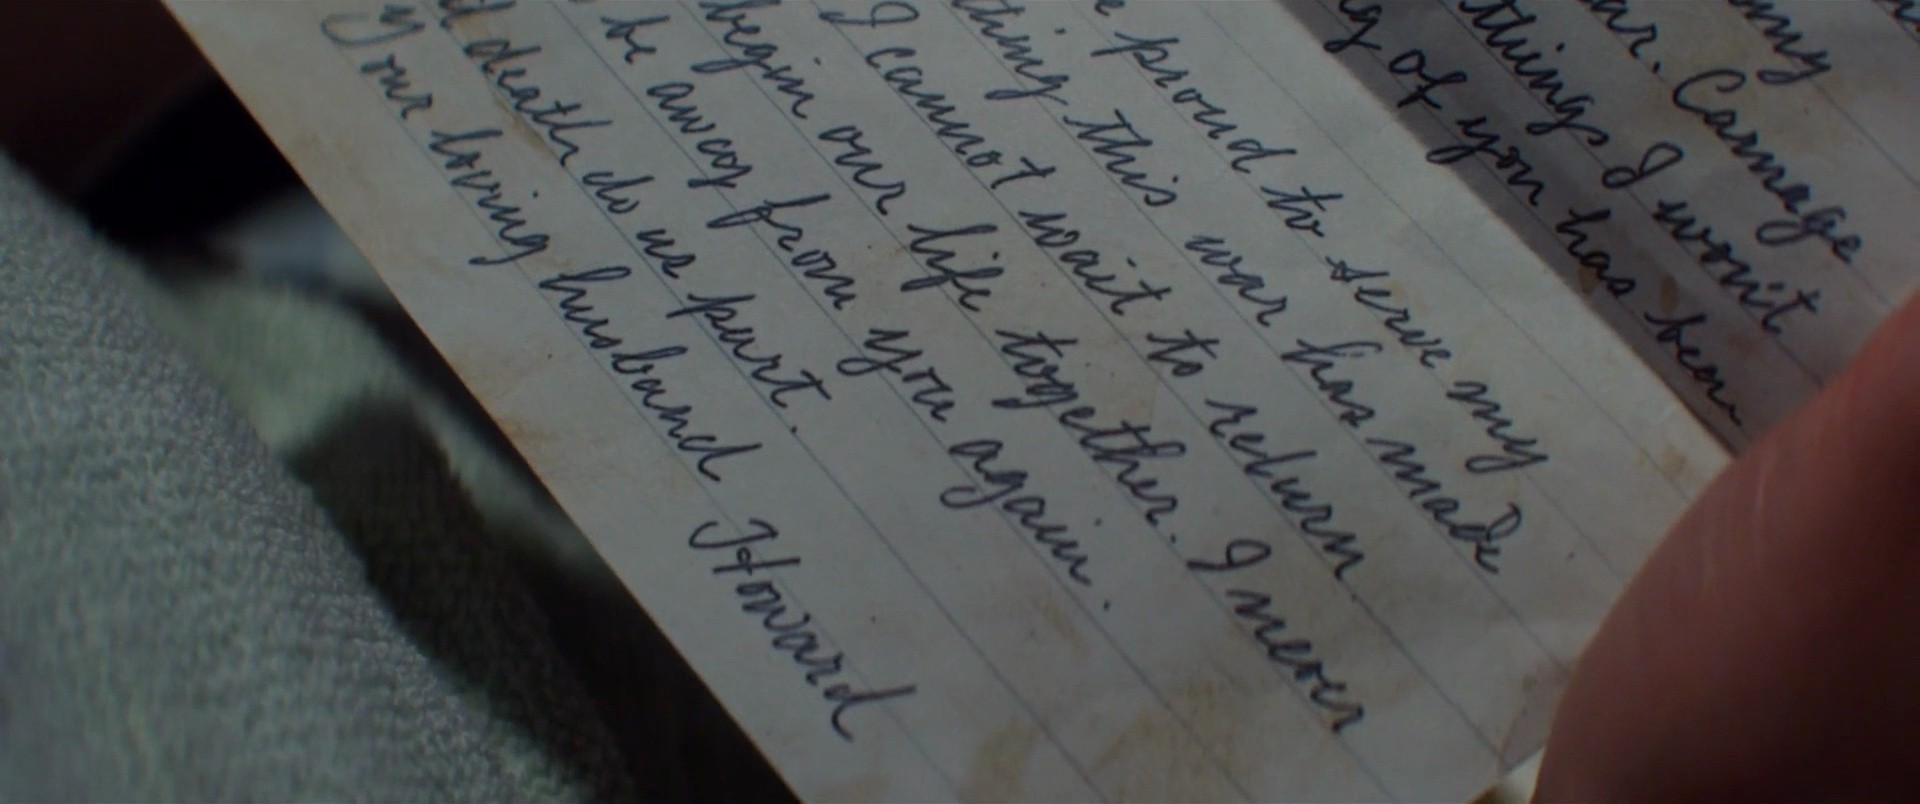 my
Carnage
things I won't
of you has been
proud to serve my
thing this war has made
I cannot wait to return
begin our life together. I never
be away from you again.
death do us part.
Your loving husband
Howard